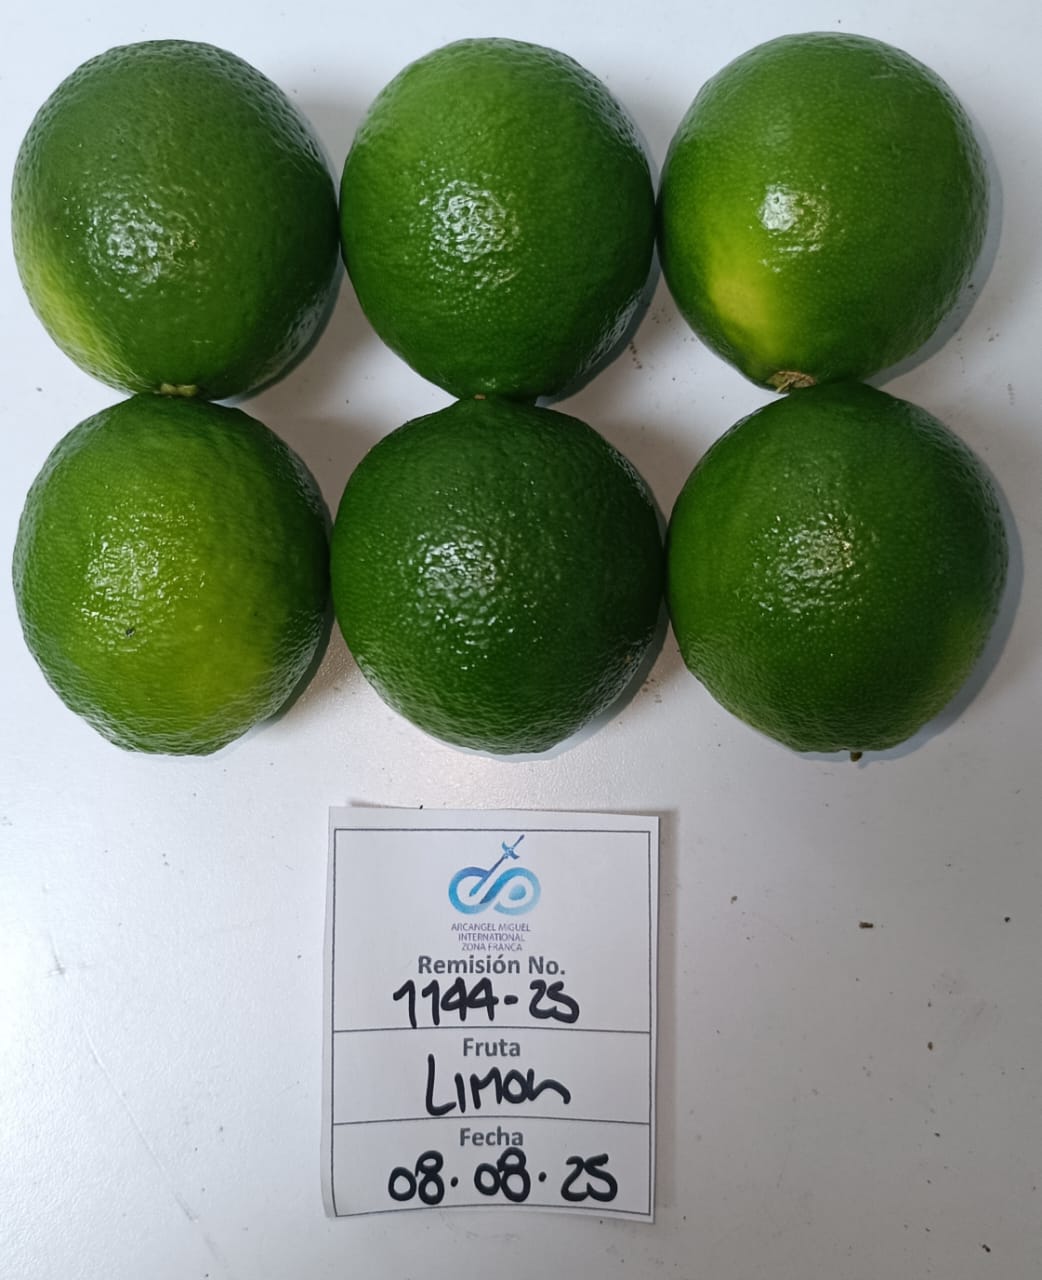 ARCANGEL MIGUEL
INTERNATIONAL
ZONA FRANCA
Remisión No.
1144-25
Fruta
LIMON
Fecha
08.08.25